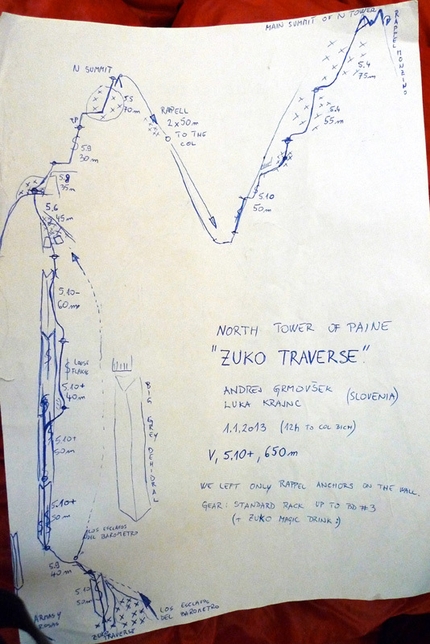 MAIN SUMMIT OF N TOWER
RAPPEL MONZINO
5.4
75m
N SUMMIT
5.5
70m
RAPELL
2x50m
TO THE
COL
5.4
55m
5.9
30m
5.8
35m
5.10
50m
5.6
45m
5.10-
60m
LOOSE
FLAKE
5.10+
40m
BIG GREY DEHIDRAL
5.10+
50m
5.10+
50m
LOS ESCLAVOS
DEL BAROMETRO
5.9
40m
ARMAS Y
TRAVERSE
LOS ESCLAVOS
DEL BAROMETRO
NORTH TOWER OF PAINE
"ZUKO TRAVERSE"
ANDREJ GRMOVŠEK
LUKA KRAJNC
(SLOVENIA)
1.1.2013
V, 5.10+, 650m
WE LEFT ONLY RAPPEL ANCHORS ON THE WALL.
GEAR: STANDARD RACK UP TO BD #3
(+ ZUKO MAGIC DRINK :)